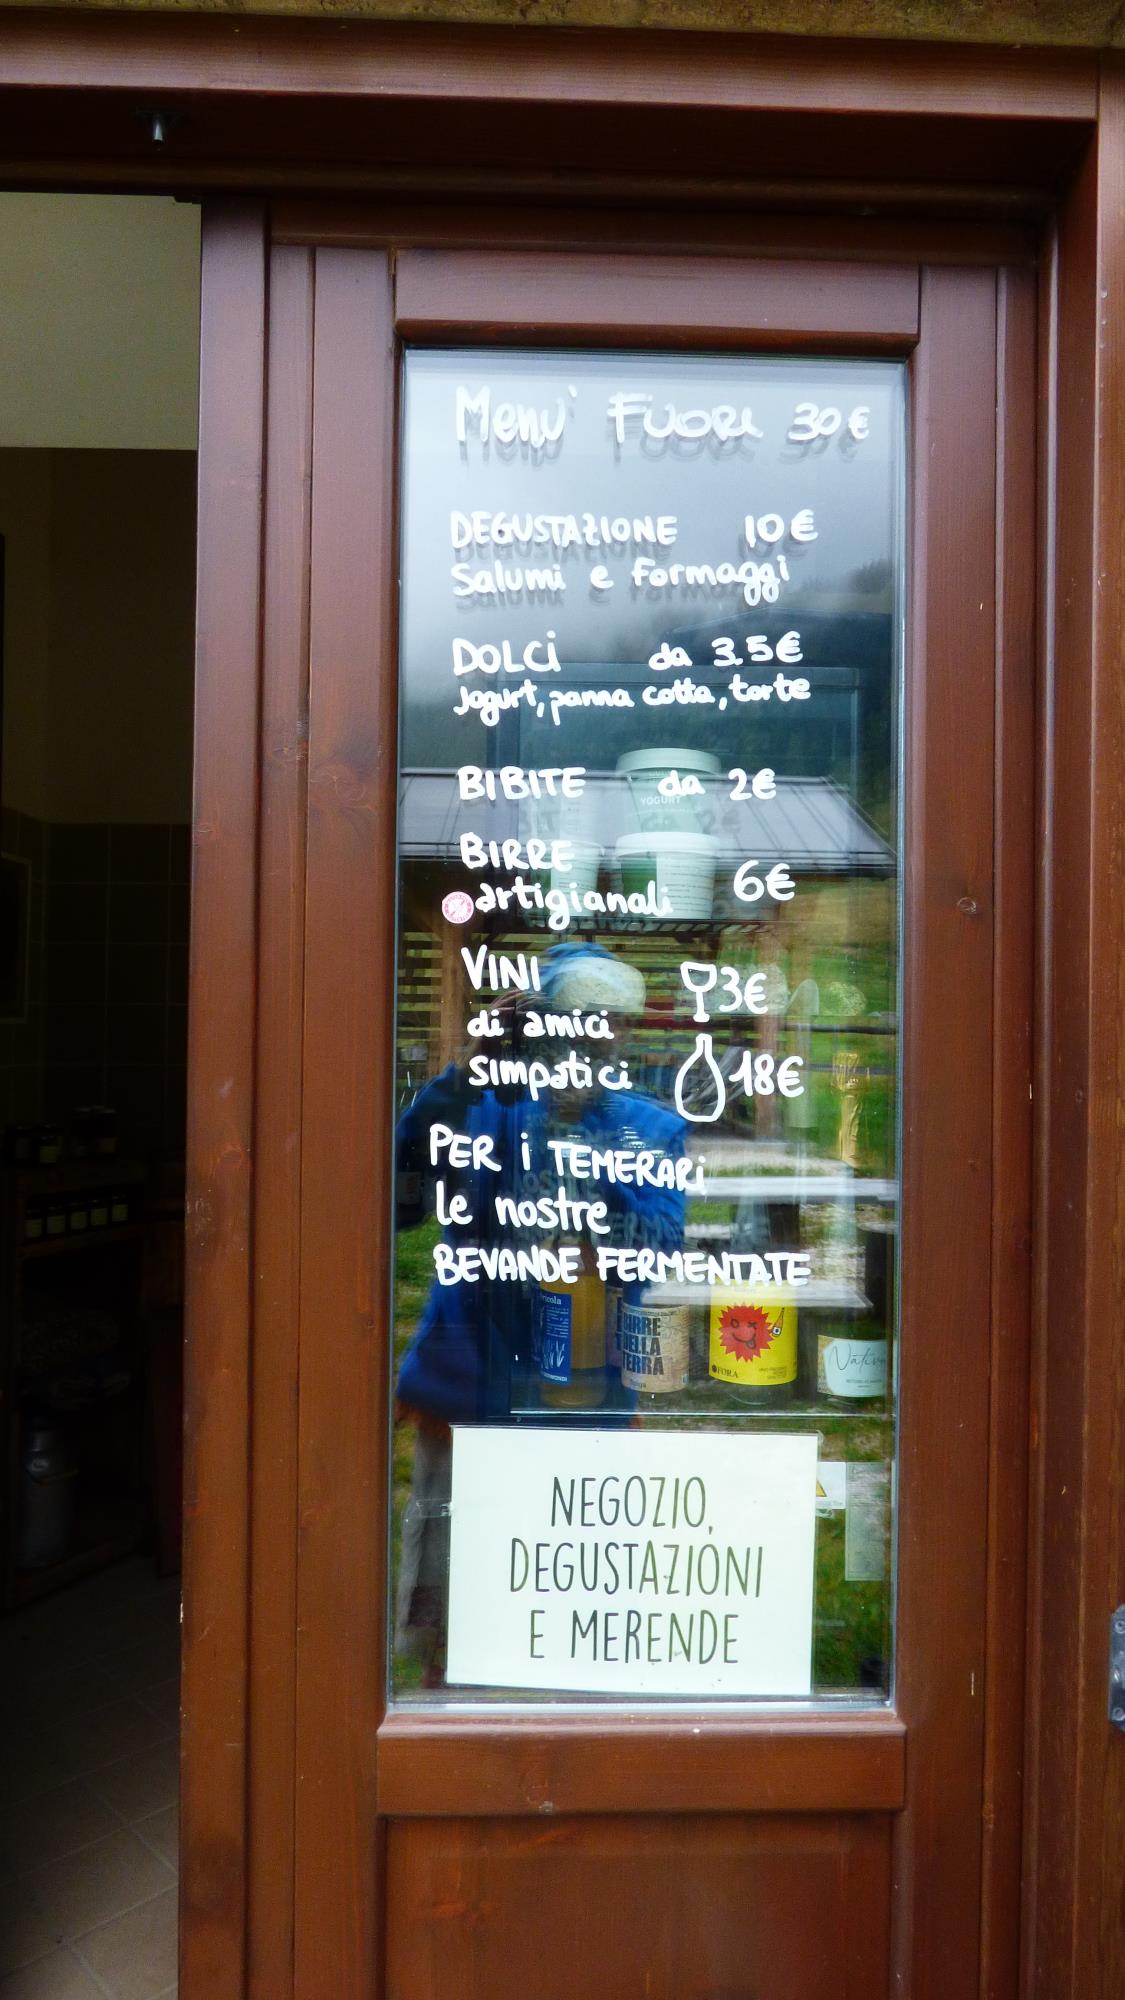 Menu' FUORI 30€
DEGUSTAZIONE 10€
Salumi e formaggi
DOLCi da 3.5€
Jogurt, panna cotta, torte
BIBITE da 2€
YOGURT
BIRRE
artigianali 6€
VINI 3€
di amici
simpatici 18€
PER i TEMERARi
le nostre
BEVANDE FERMENTATE
BIRRE
DELLA
TERRA
FORA
Nativo
NEGOZIO,
DEGUSTAZIONI
E MERENDE